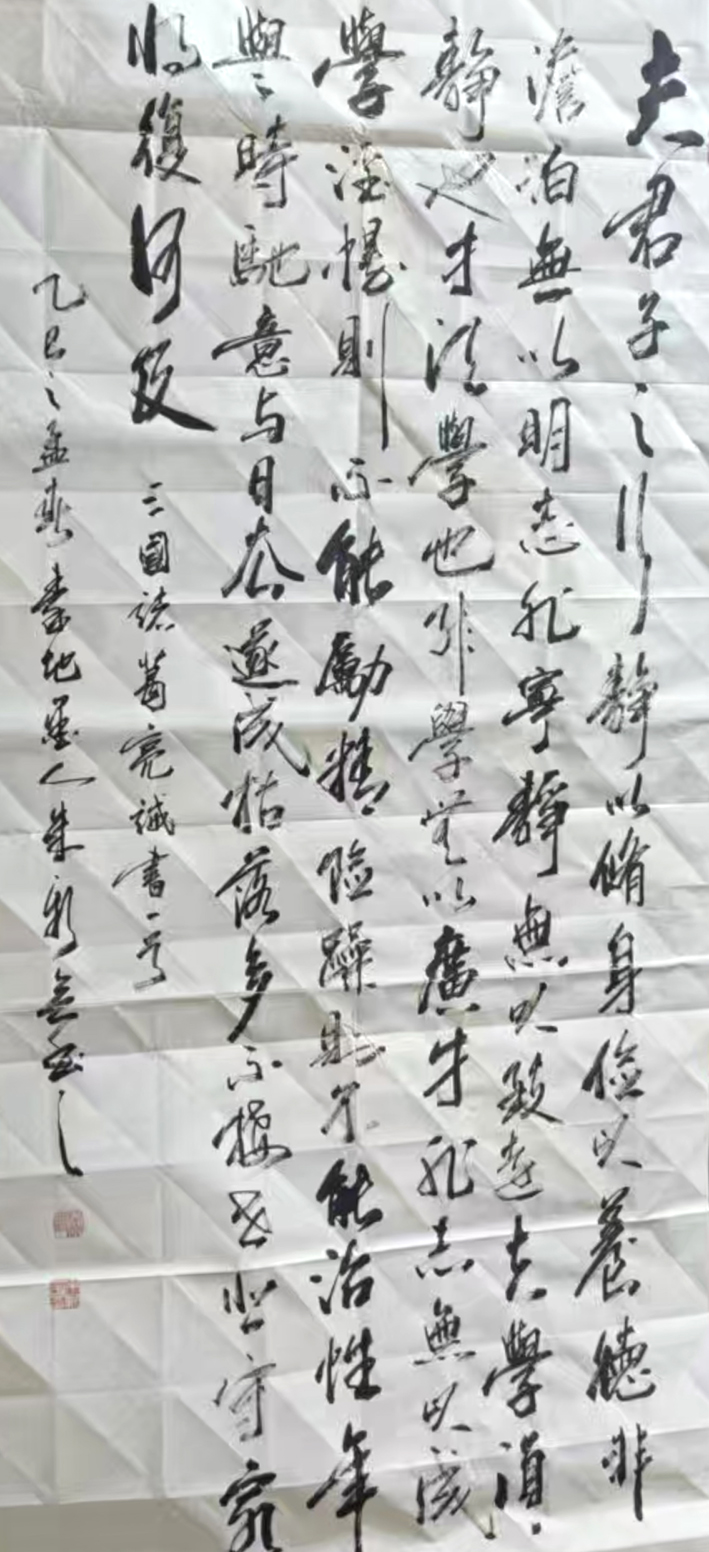 夫君子之行靜以脩身儉以養德非
澹泊無以明志非寧靜無以致遠夫學須
靜也才須學也非學無以廣才非志無以成
學淫慢則不能勵精險躁則不能治性年
與時馳意与日去遂成枯落多不接世悲守窮
將復何及
三國諸葛亮誡書一首
乙巳之孟春 墨人朱 之